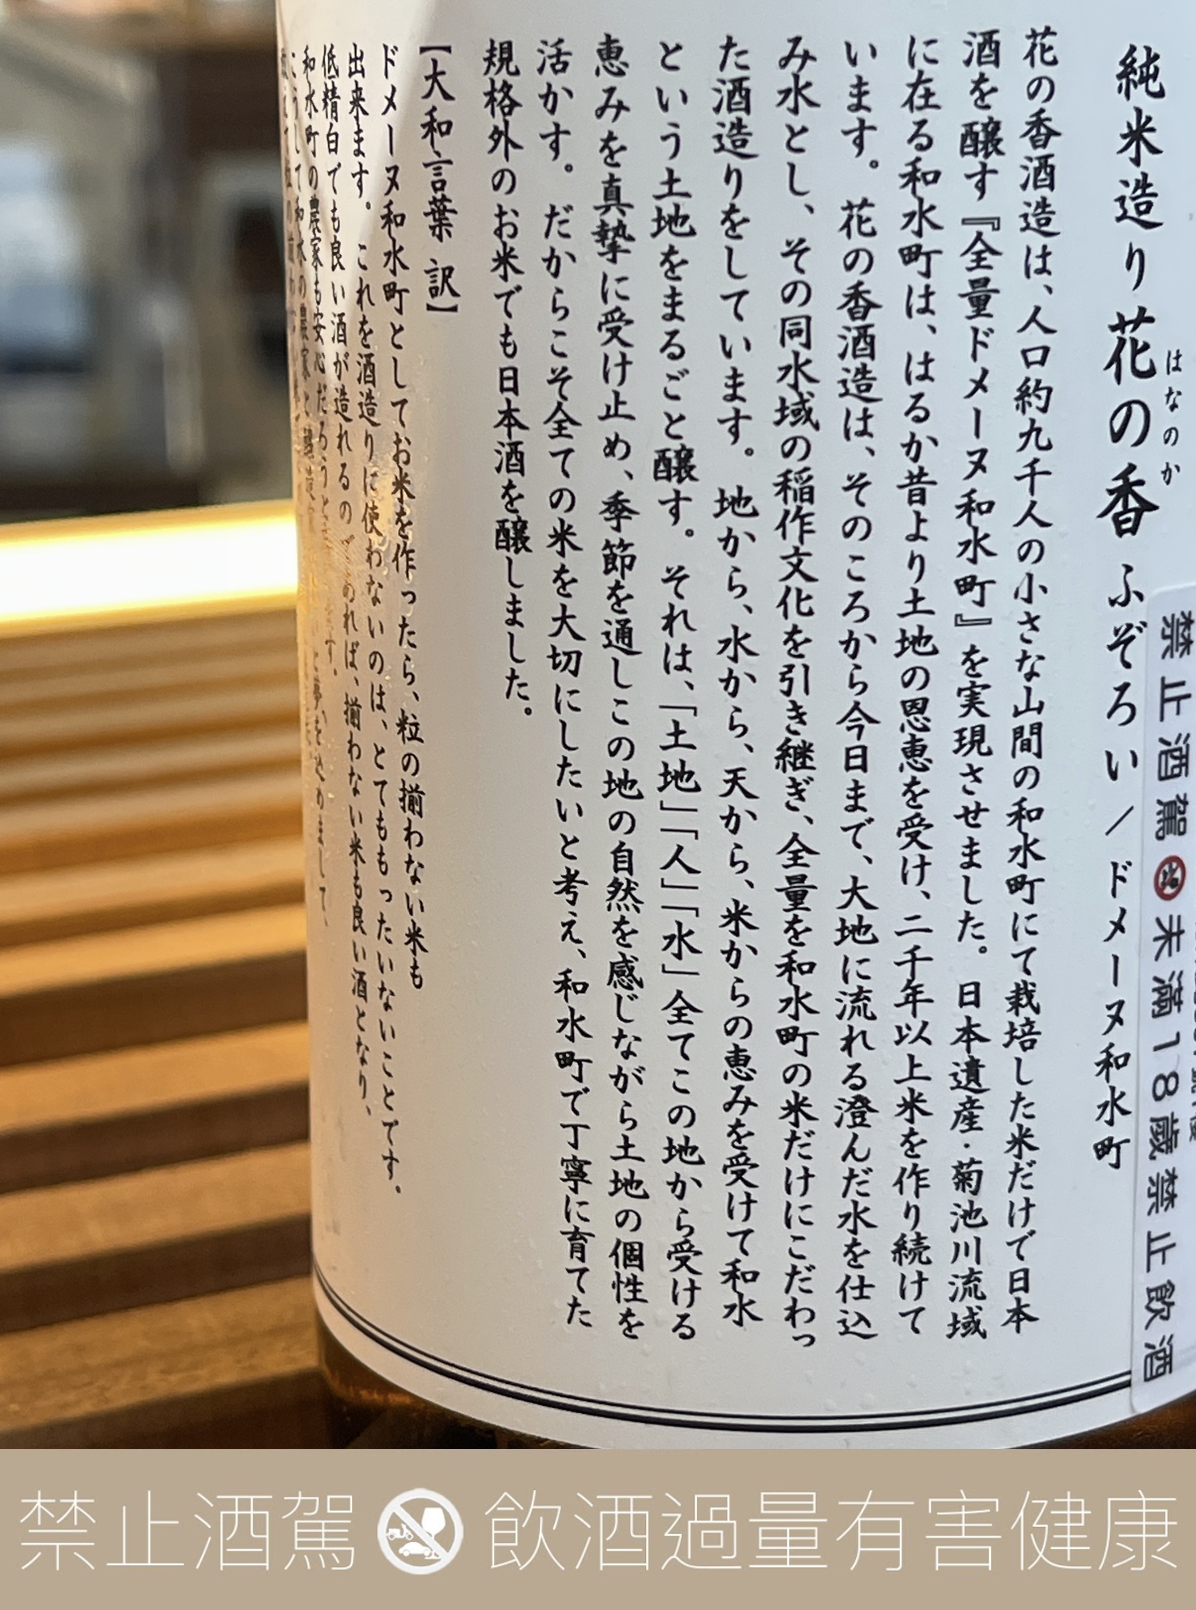 純米造り 花の香 ふぞろい/ドメーヌ和水町
はなのか
花の香酒造は、人口約九千人の小さな山間の和水町にて栽培した米だけで日本
酒を醸す『全量ドメーヌ和水町』を実現させました。日本遺産・菊池川流域
に在る和水町は、はるか昔より土地の恩恵を受け、二千年以上米を作り続けて
います。花の香酒造は、そのころから今日まで、大地に流れる澄んだ水を仕込
み水とし、その同水域の稲作文化を引き継ぎ、全量を和水町の米だけにこだわっ
た酒造りをしています。地から、水から、天から、米からの恵みを受けて和水
という土地をまるごと醸す。それは、「土地」「人」「水」全てこの地から受ける
恵みを真摯に受け止め、季節を通しこの地の自然を感じながら土地の個性を
活かす。だからこそ全ての米を大切にしたいと考え、和水町で丁寧に育てた
規格外のお米でも日本酒を醸しました。
【大和言葉 訳】
ドメーヌ和水町としてお米を作ったら、粒の揃わない米も
出来ます。これを酒造りに使わないのは、とてももったいないことです。
低精白でも良い酒が造れるのであれば、揃わない米も良い酒となり、
和水町の農家も安心だろうと
こうして和水の農家と
禁止酒駕 未滿18歲禁止飲酒
禁止酒駕 飲酒過量有害健康